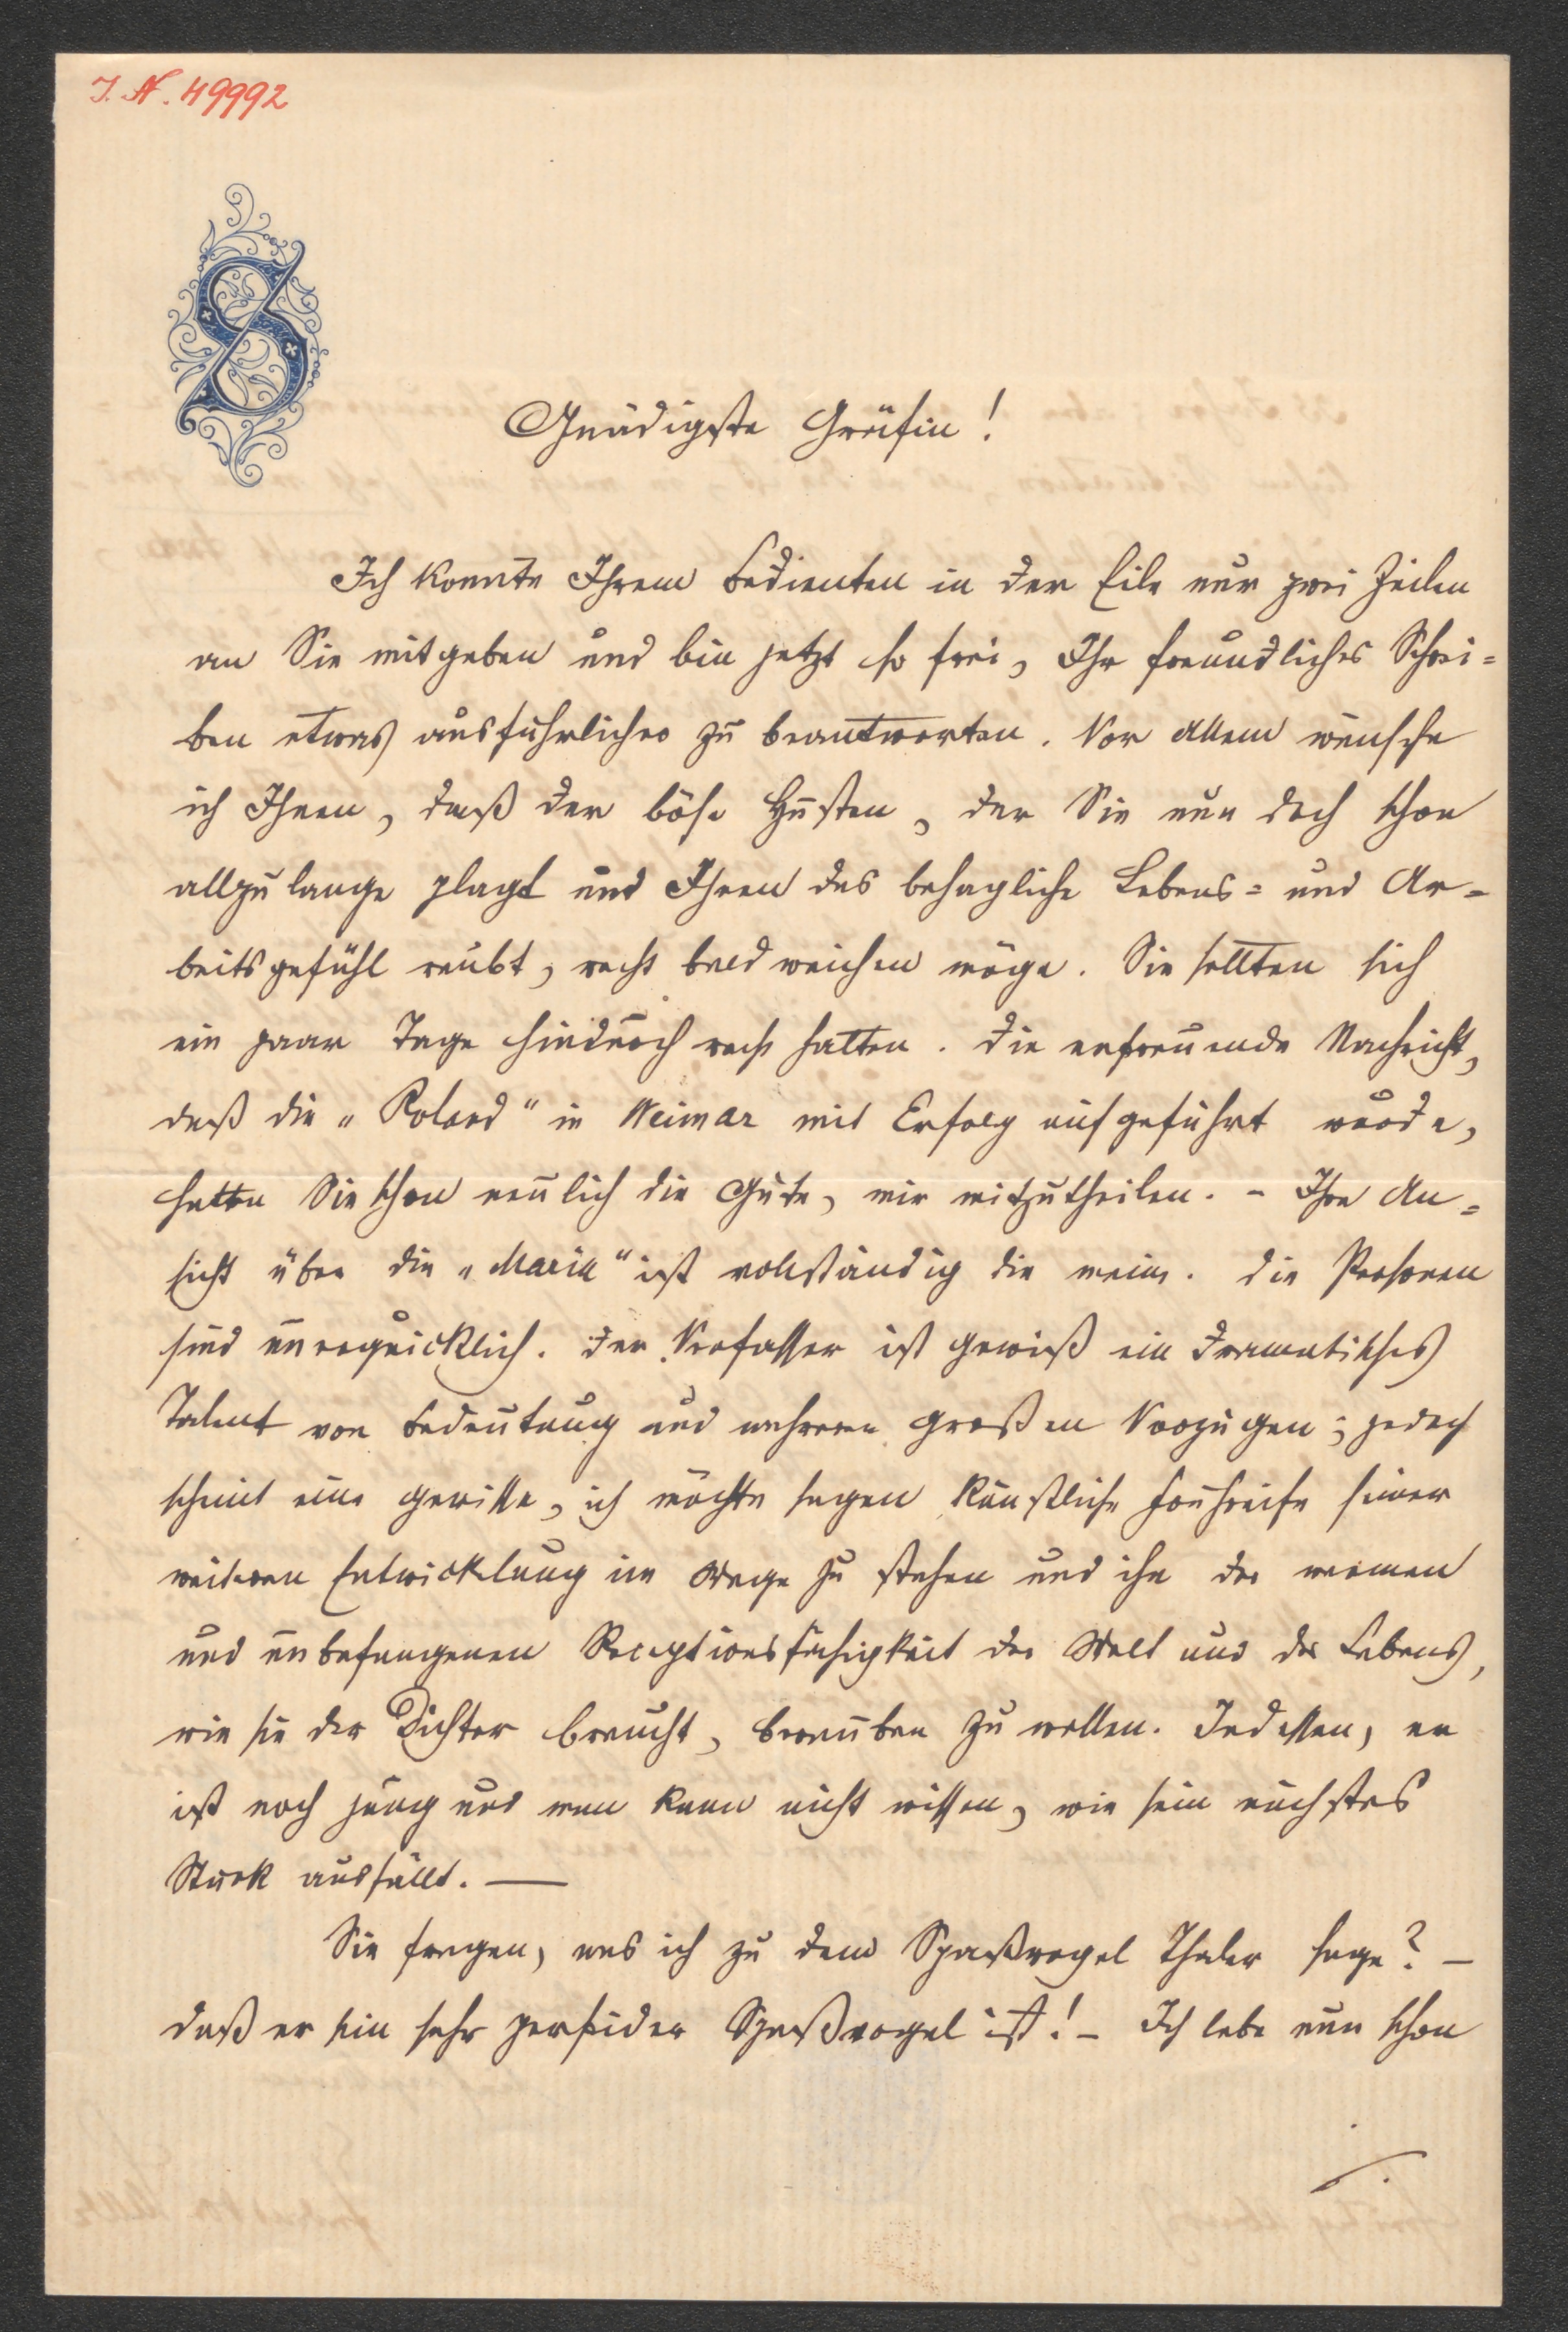 J. N. 49992
S
Gnädigste Gräfin!
Ich konnte Ihrem Bedienten in der Eile nur zwei Zeilen
an Sie mitgeben und bin jetzt so frei, Ihr freundliches Schrei=
ben etwas ausführlicher zu beantworten. Vor Allem wünsche
ich Ihnen, daß der böse Husten, der Sie nun doch schon
allzulange plagt und Ihnen das behagliche Lebens= und Ar=
beitsgefühl raubt, recht bald weichen möge. Sie sollten sich
ein paar Tage hindurch recht halten. Die erfreuende Nachricht,
daß die „Roland" in Weimar mit Erfolg aufgeführt wurde,
hatten Sie schon neulich die Güte, mir mitzutheilen. - Ihre An=
sicht über die „Maria" ist vollständig die meine. Die Personen
sind unerquicklich. Der Verfasser ist gewiß ein dramatisches
Talent von Bedeutung und mehreren großen Vorzügen; jedoch
scheint eine gewisse, ich möchte sagen künstliche Frühreife seiner
weiteren Entwicklung im Wege zu stehen und ihn der warmen
und unbefangenen Receptionsfähigkeit der Welt und des Lebens,
wie sie der Dichter braucht, berauben zu wollen. Indessen, er
ist noch jung und man kann nicht wissen, wie sein nächstes
Stück ausfällt. —
Sie fragen, was ich zu dem Spaßvogel Thaler sage? —
daß er ein sehr perfider Spaßvogel ist! - Ich lebe nun schon